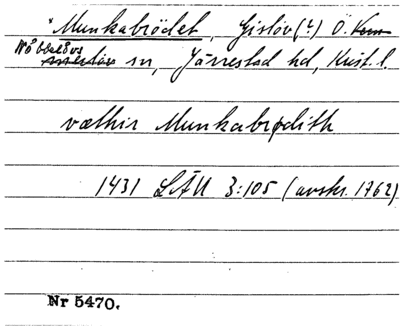 *Munkabrödet, Gislöv(?) Ö.
Nöbbelövs sn, Järrestad hd, Krist. l.
væthir Munkabrødith
1431 LÄU 3:105 (avskr. 1762)
Nr 5470.